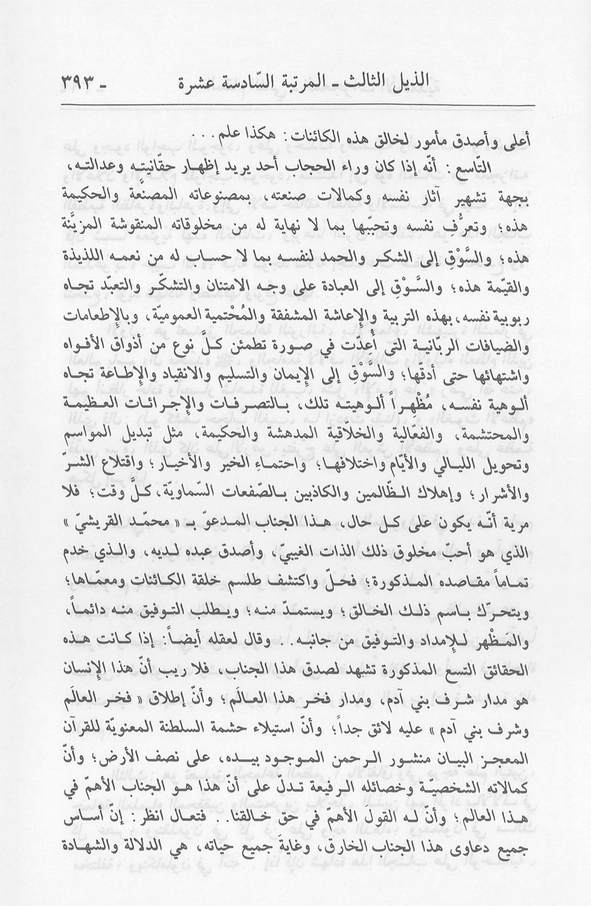 الذيل الثالث - المرتبة السّادسة عشرة - ٣٩٣
أعلى وأصدق مأمور لخالق هذه الكائنات: هكذا علم...
التّاسع: أنّه إذا كان وراء الحجاب أحد يريد إظهار حقّانيتِه وعدالته،
بجهة تشهير آثار نفسه وكمالات صنعته، بمصنوعاته المصنَّعة والحكيمة
هذه؛ وتعرُّف نفسه وتحبّبها بما لا نهاية له من مخلوقاته المنقوشة المزيَّنة
هذه؛ والسَّوْق إلى الشكر والحمد لنفسه بما لا حساب له من نعمه اللذيذة
والقيّمة هذه؛ والسَّوْق إلى العبادة على وجه الامتنان والتشكّر والتعبّد تجاه
ربوبية نفسه، بهذه التربية والإعاشة المشفقة والمُحْتمية العموميّة، وبالإطعامات
والضيافات الربّانية التي أُعدّت في صورة تطمئن كلَّ نوع من أذواق الأفواه
واشتهائها حتى أدقّها؛ والسَّوْق إلى الإيمان والتسليم والانقياد والإطاعة تجاه
ألوهية نفسه، مُظْهِراً ألوهيته تلك، بالتصرفات والإجرائات العظيمة
والمحتشمة، والفعّالية والخلّاقية المدهشة والحكيمة، مثل تبديل المواسم
وتحويل الليالي والأيّام واختلافها؛ واحتماءِ الخير والأخيار؛ واقتلاع الشرّ
والأشرار؛ وإهلاك الظّالمين والكاذبين بالصّفعات السّماويّة، كلَّ وقت؛ فلا
مرية أنّه يكون على كل حال، هذا الجناب المدعوّ بـ « محمّد القريشيّ »
الذي هو أحبّ مخلوق ذلك الذات الغيبيّ، وأصدق عبده لديه، والذي خدم
تماماً مقاصده المذكورة؛ فحلّ واكتشف طلسم خلقة الكائنات ومعمّاها؛
ويتحرّك باسم ذلك الخالق؛ ويستمدّ منه؛ ويطلب التوفيق منه دائماً،
والمَظْهر للإمداد والتوفيق من جانبه.. وقال لعقله أيضاً: إذا كانت هذه
الحقائق التسع المذكورة تشهد لصدق هذا الجناب، فلا ريب أنّ هذا الإنسان
هو مدار شرف بني آدم، ومدار فخر هذا العالَم؛ وأنّ إطلاق « فخر العالَم
وشرف بني آدم » عليه لائق جداً؛ وأنّ استيلاء حشمة السلطنة المعنويّة للقرآن
المعجز البيان منشور الرحمن الموجود بيده، على نصف الأرض؛ وأنّ
كمالاته الشخصيّة وخصائله الرفيعة تدل على أنّ هذا هو الجناب الأهمّ في
هذا العالم؛ وأنّ له القول الأهمّ في حق خالقنا.. فتعال انظر: إنّ أساس
جميع دعاوى هذا الجناب الخارق، وغايةَ جميع حياته، هي الدلالة والشهادة